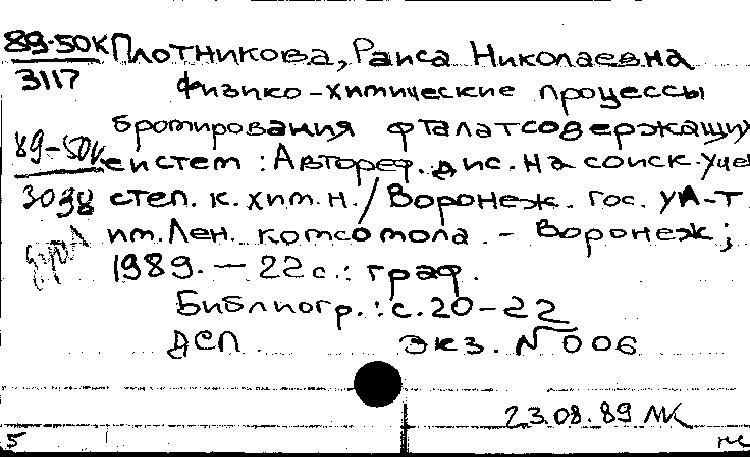 89-50К Плотникова, Раиса Николаевна
3117
Физико-химические процессы
бромирования фталатсодержащих
89-50к систем : Автореф. дис. на соиск. учен
3038 степ. к. хим. н. / Воронеж. гос. ун-т
им. Лен. комсомола. - Воронеж;
1989. - 22 с.: граф.
Библиогр.: с. 20-22
ДСП экз. № 006
23.08.89 МК
5 нс